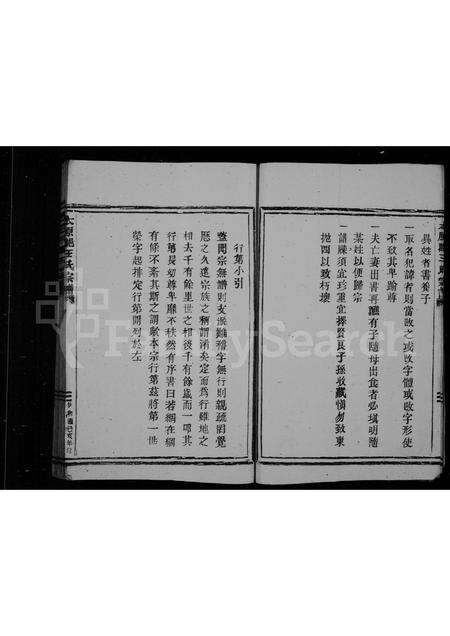 異姓者書養子
一取名犯諱者則當改之或改字體或改字形使
不致其卑踰尊
一夫亡妻出書再醮有子隨母出食者必填明隨
某姓以便歸宗
一譜牒須宜珍重宜擇賢良子孫收藏慎勿致東
拋西以致朽壞
行第小引
蓋聞宗無譜則支派稽字無行則親疏罔覺
歷之久遠宗族之稱謂淆矣定而為行雖地之
相去千有餘里世之相後千有餘歲而一啣其
行第長幼尊卑靡不秩然有序書曰若網在綱
有條不紊其斯之謂歟本宗行第茲將第一世
榮字起排定行第開列於左
FamilySearch